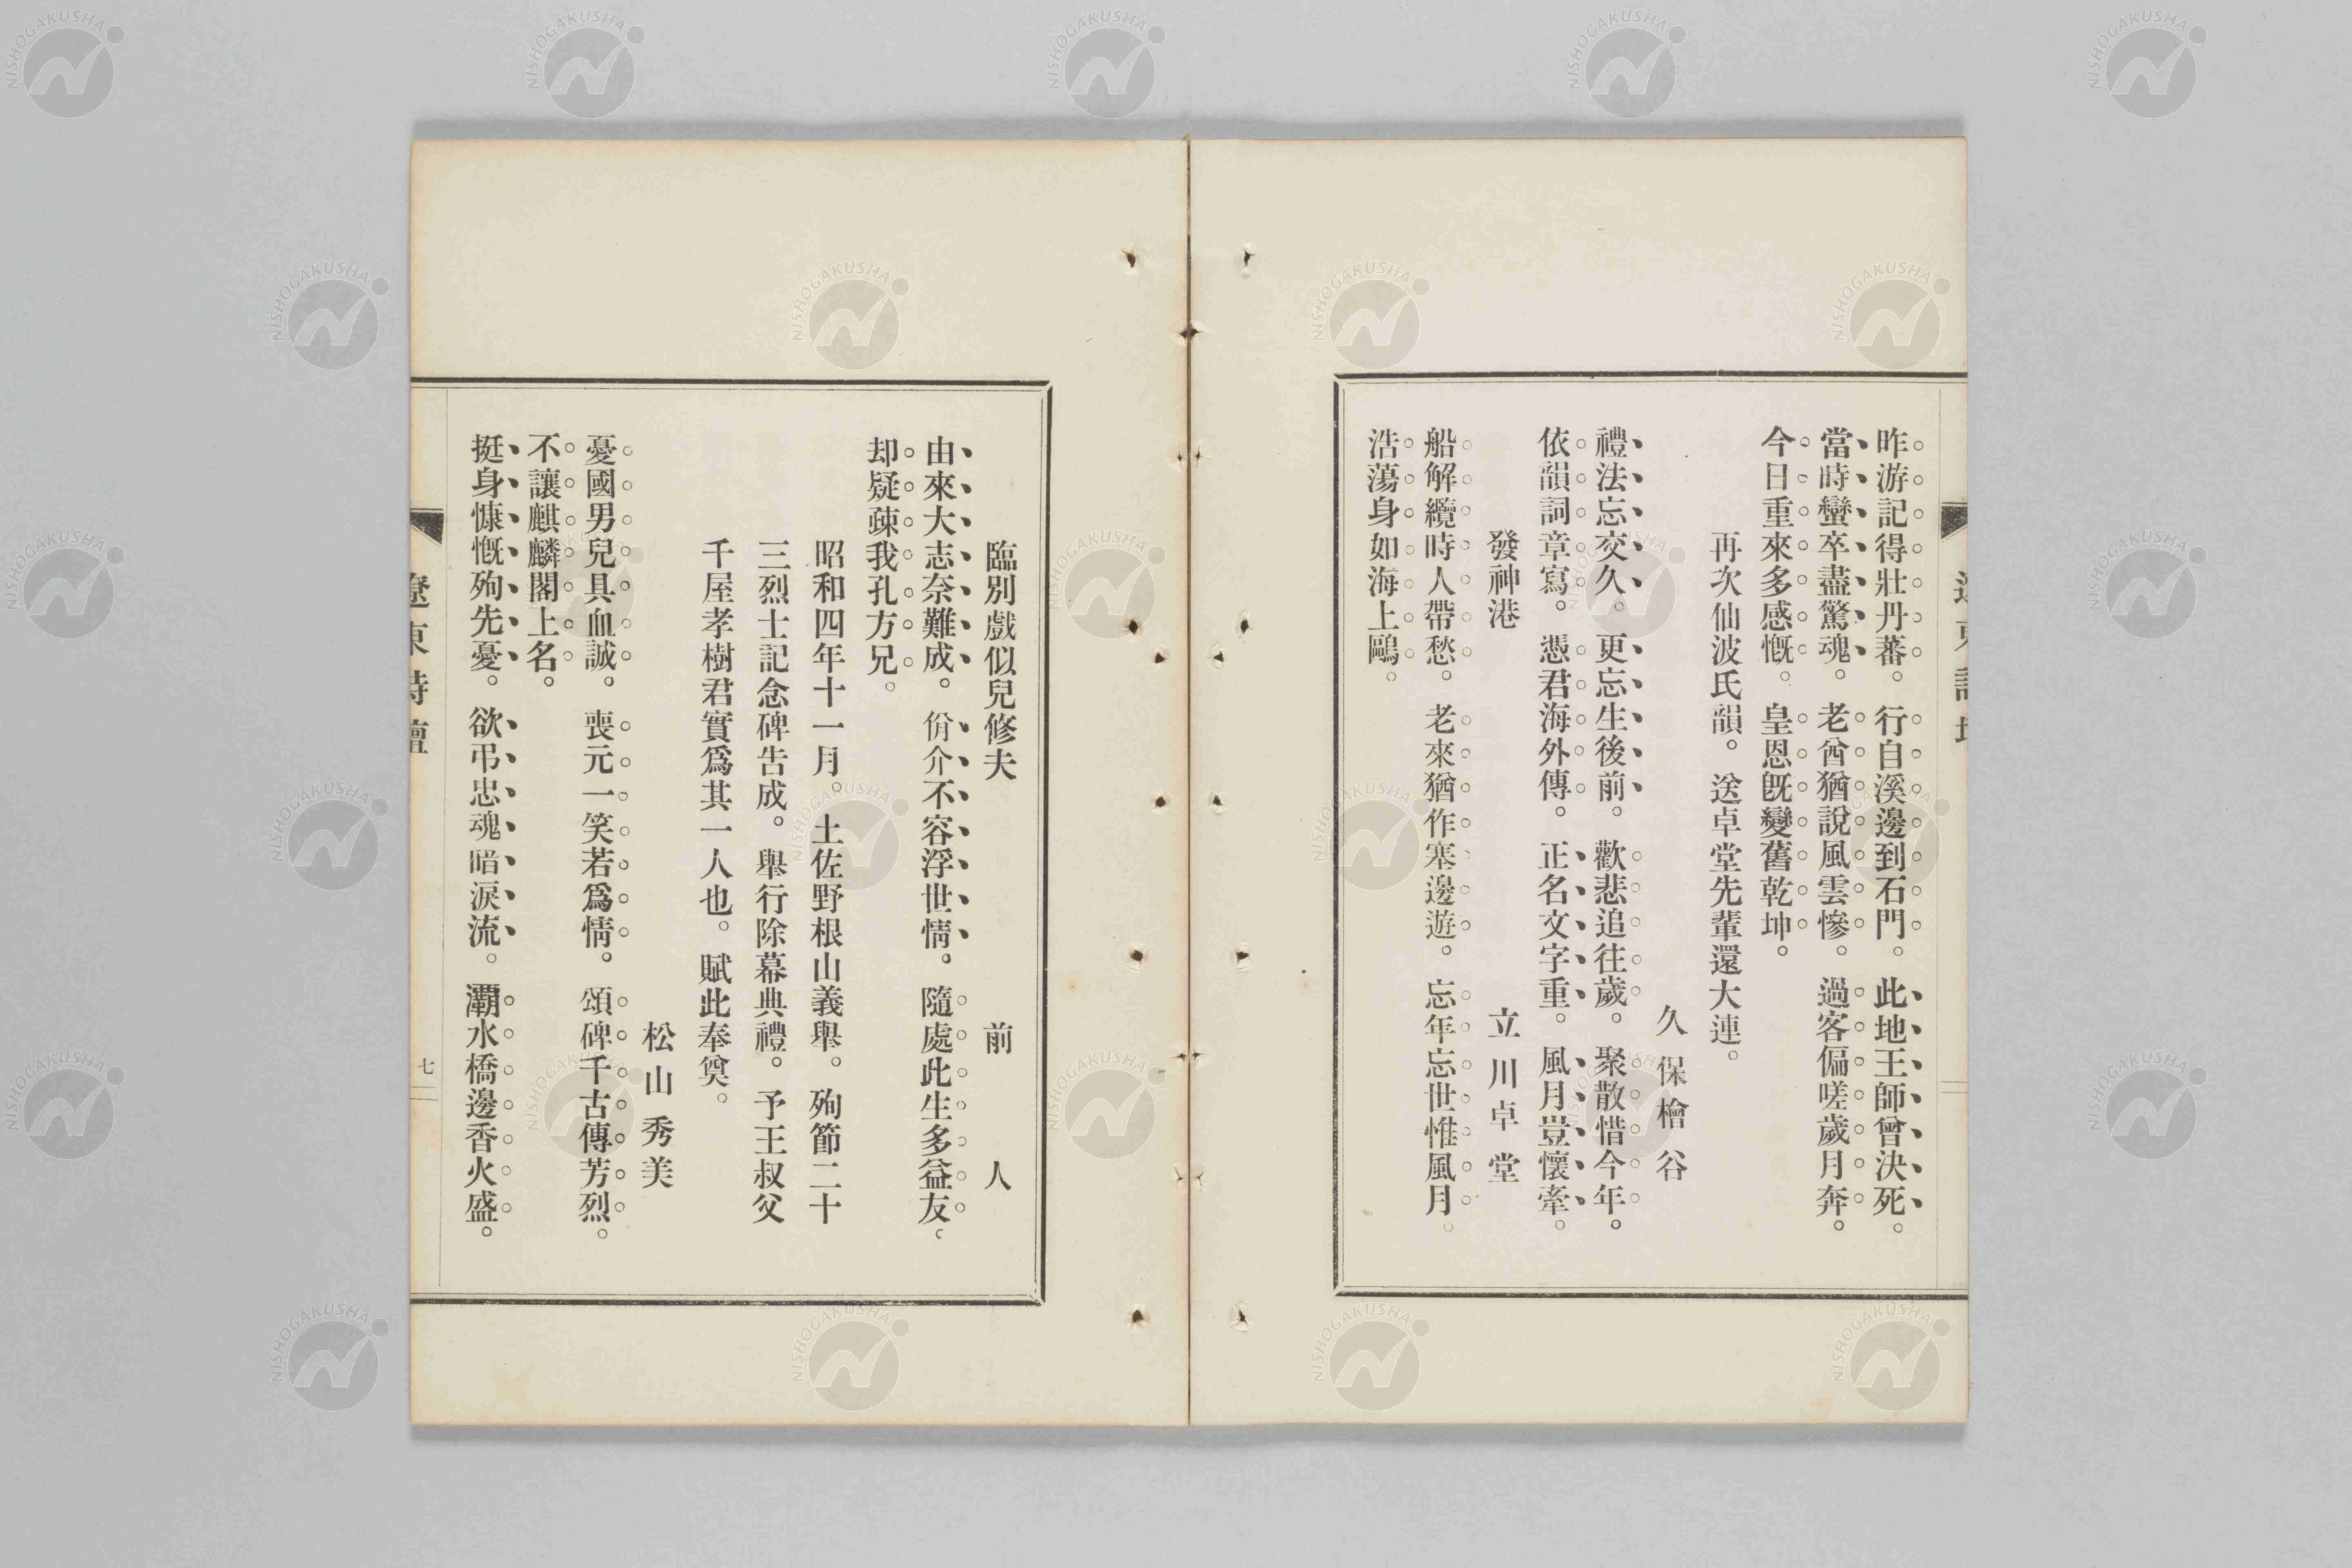 昨游記得壯丹蕃。行自溪邊到石門。此地王師曾決死。
當時蠻卒盡驚魂。老酋猶說風雲慘。過客偏嗟歲月奔。
今日重來多感慨。皇恩旣變舊乾坤。
再次仙波氏韻。送卓堂先輩還大連。
久保檜谷
禮法忘交久。更忘生後前。歡悲追往歲。聚散惜今年。
依韻詞章寫。憑君海外傳。正名文字重。風月豈懷牽。
發神港 立川卓堂
船解纜時人帶愁。老來猶作塞邊遊。忘年忘世惟風月。
浩蕩身如海上鷗。
臨別戲似兒修夫 前人
由來大志奈難成。佾介不容浮世情。隨處此生多益友。
却疑疎我孔方兄。
昭和四年十一月。土佐野根山義舉。殉節二十
三烈士記念碑告成。舉行除幕典禮。予王叔父
千屋孝樹君實爲其一人也。賦此奉奠。
松山秀美
憂國男兒具血誠。喪元一笑若爲情。頌碑千古傳芳烈。
不讓麒麟閣上名。
挺身慷慨殉先憂。欲弔忠魂暗淚流。灞水橋邊香火盛。
遼東詩壇
七
NISHOGAKUSHA